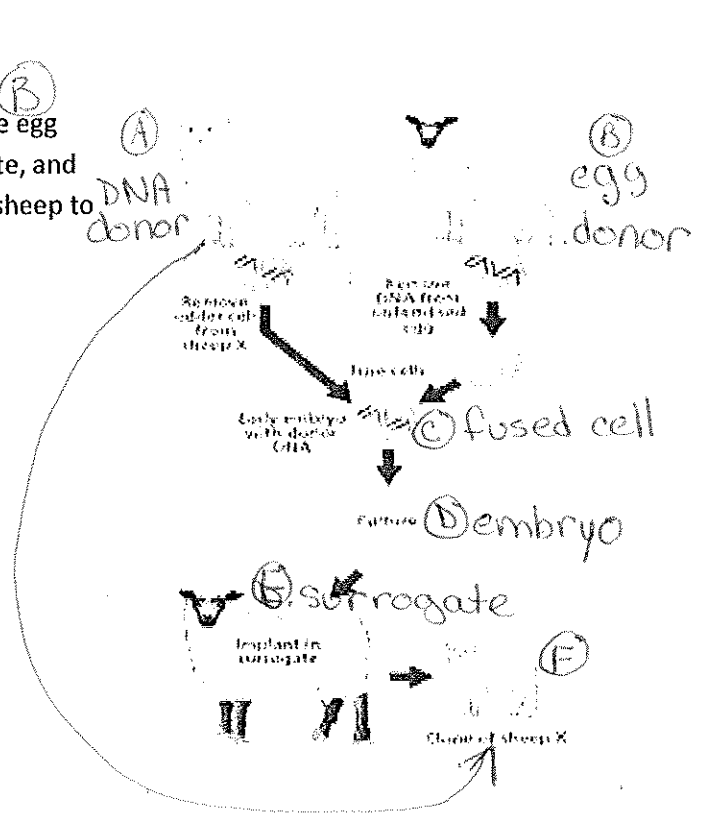 B
e egg
te, and
sheep to
A
DNA
donor
B
egg
donor
Remove
udder cell
from
sheep X
Remove
DNA from
unfertilised
egg
Fuse cells
Early embryo
with donor
DNA
C fused cell
D embryo
E. surrogate
Implant in
surrogate
F
Clone of sheep X